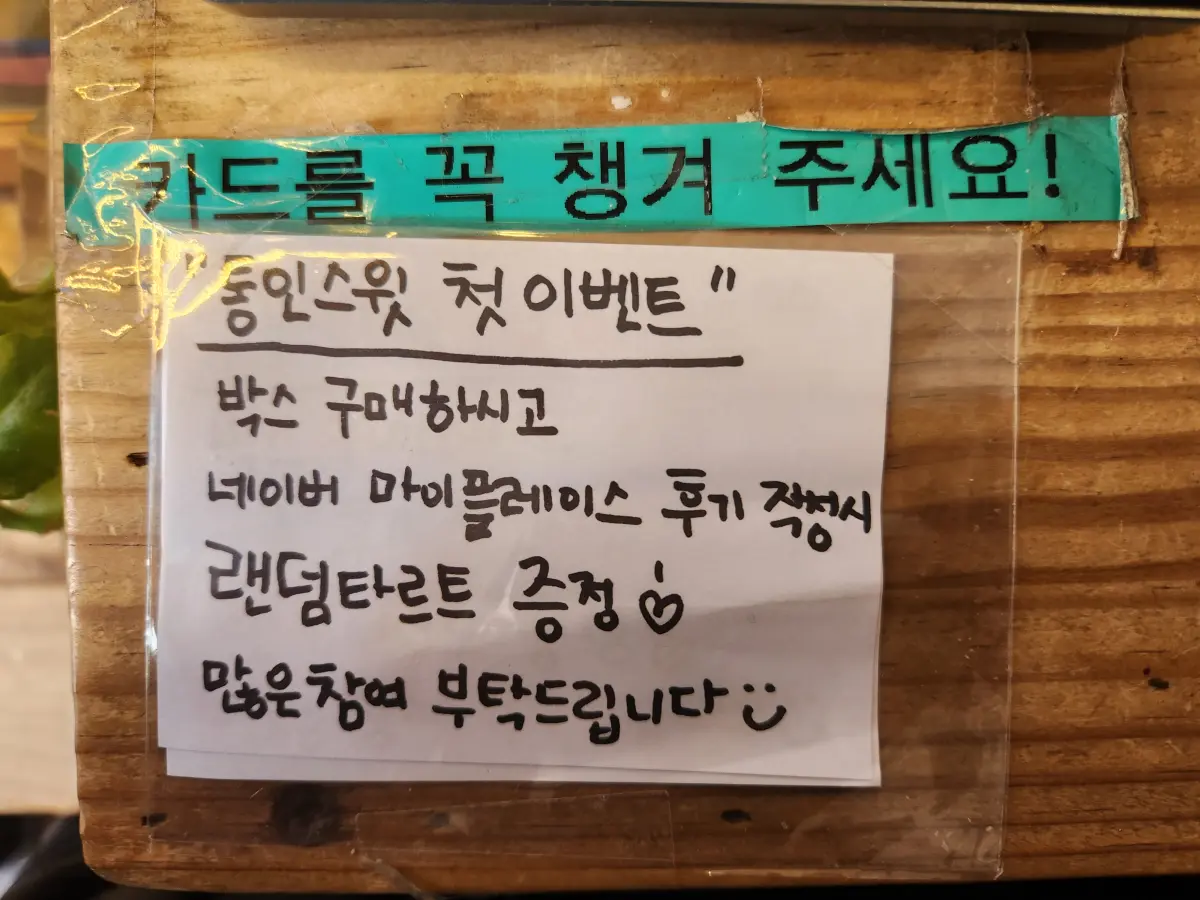 카드를 꼭 챙겨 주세요!
"동인스윗 첫 이벤트"
박스 구매하시고
네이버 마이플레이스 후기 작성시
랜덤타르트 증정
많은 참여 부탁드립니다 :)